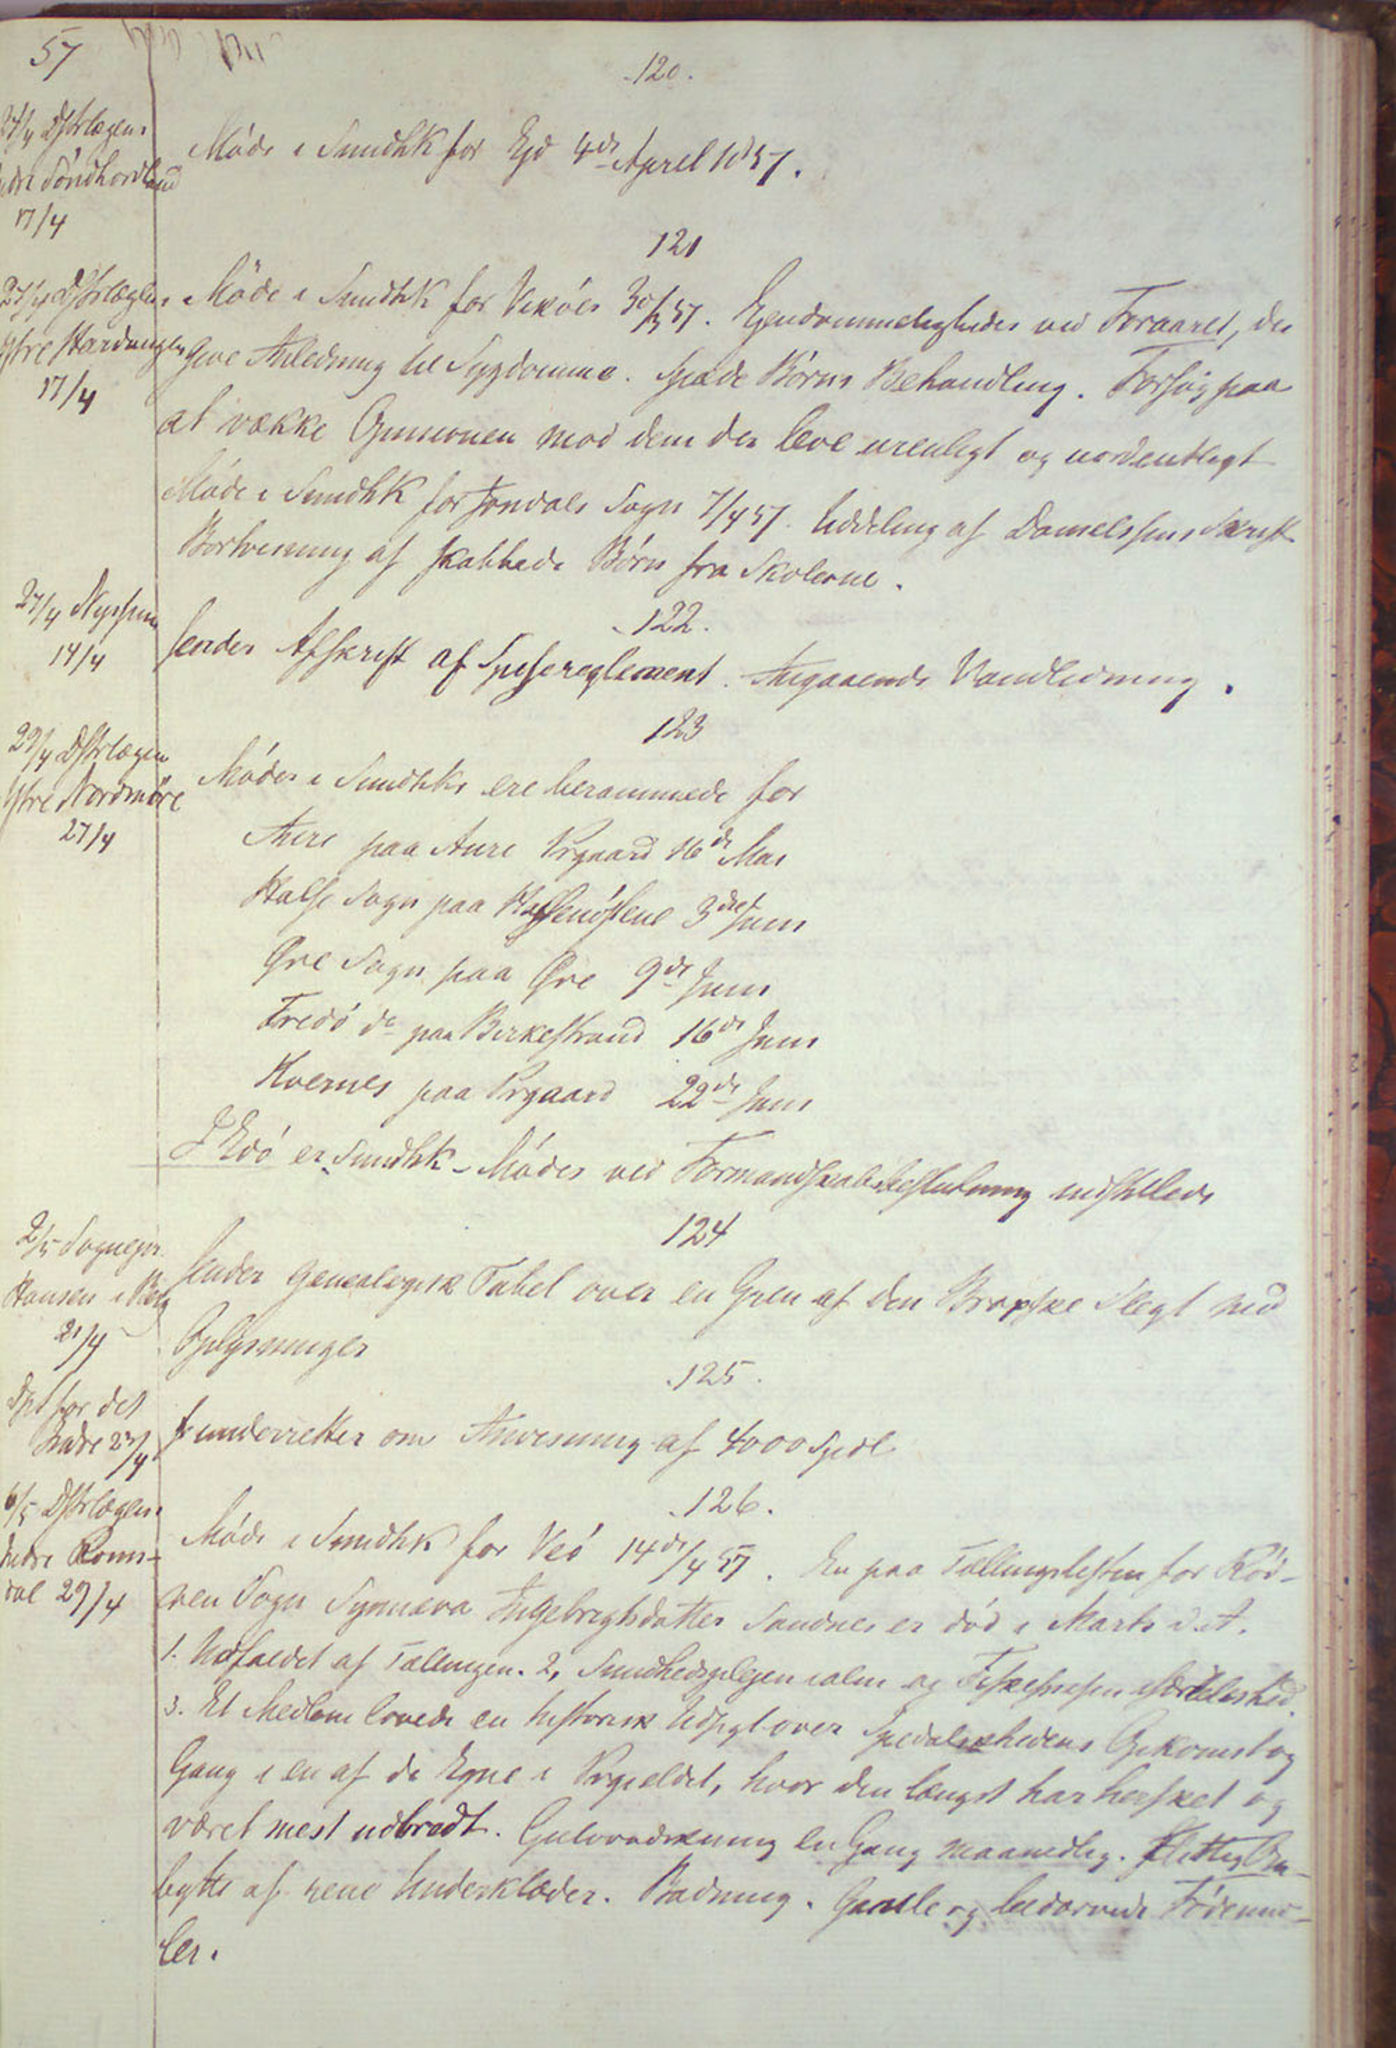 57
120.
27/4 Dstrlægen i
Indre Söndhordland
17/4
Möde i Sundhk for Eid 4de April 1857.
121
27/4 Dstrlægen i
Ytre Hardanger
17/4
Möde i Sundhk for Vikör 30/3 57. Eiendommeligheder ved Foraaret, der
give Anledning til Sygdomme. Spæde Börns Behandling. Forsög paa
at vække Opinionen mod dem der leve urenligt og uordentligt
Möde i Sundhk for Jondals Sogn 7/4 57. Uddeling af Danielssens Skrift
Bortvisning af skabbede Börn fra Skolerne.
122.
27/4
14/4
sender Afskrift af Spisereglement. Angaaende Vandledning.
123
29/4 Dstrlægen
Ytre Nordmöre
27/4
Möder i Sundhk ere berammede for
Aure paa Aure Prgaard 16de Mai
Halse Sogn paa 3die Juni
Øre Sogn paa Øre 9de Juni
Fredö do paa Birkestrand 16de Juni
Kvernes paa Prgaard 22de Juni
I Edö er Sundhk-Möder ved Formandskabsbeslutning indstillede
124
2/5 Sognepr.
Hansen i Berg
21/4
sender genealogisk Tabel over en Gren af den Slegt med
Oplysninger
125.
Dpt for det
Indre 23/4
underretter om Anvisning af 4000 Spdl
126.
6/5 Dstrlægen i
Indre Roms-
dal 29/4
Möde i Sundhk for Veö 14de/4 57. En paa Tællingslisten for Röd-
ven Sogn Synneva Ingebrigtsdatter Sandnes er död i Marts d. A.
1. Udfaldet af Tællingen. 2, Sundhedsplejen i alm og i Særdeleshed.
3. Et Medlem lovede en historisk Udsigt over Spedalskhedens Opkomst og
Gang i en af de Egne i Prgjeldet, hvor den længst har hersket og
været mest udbredt. Gulvvadskning en Gang maanedlig. flittig Om-
bytte af rene Underklæder. Badning. Gamle og bedærvede Födemid-
ler.